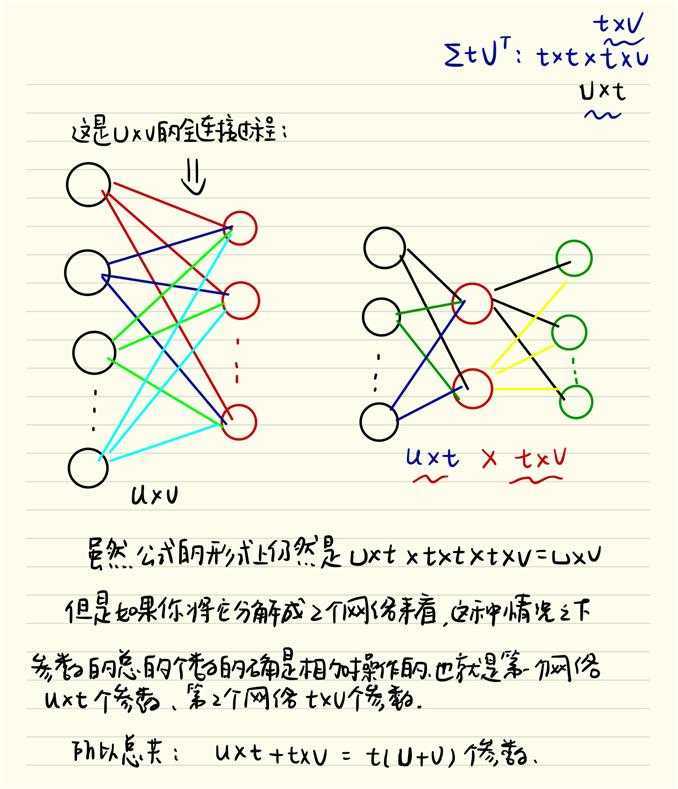 t×v
Σtvᵀ: t×t×t×v
u×t
这是u×v的全连接过程:
u×v
u×t × t×v
虽然公式的形式上仍然是u×t×t×t×t×v=u×v
但是如果你将它分解成2个网络来看,这种情况之下
参数的总的个数的确是相加操作的.也就是第一个网络
u×t个参数、第2个网络t×v个参数.
所以总共: u×t+t×v = t(u+v)个参数.